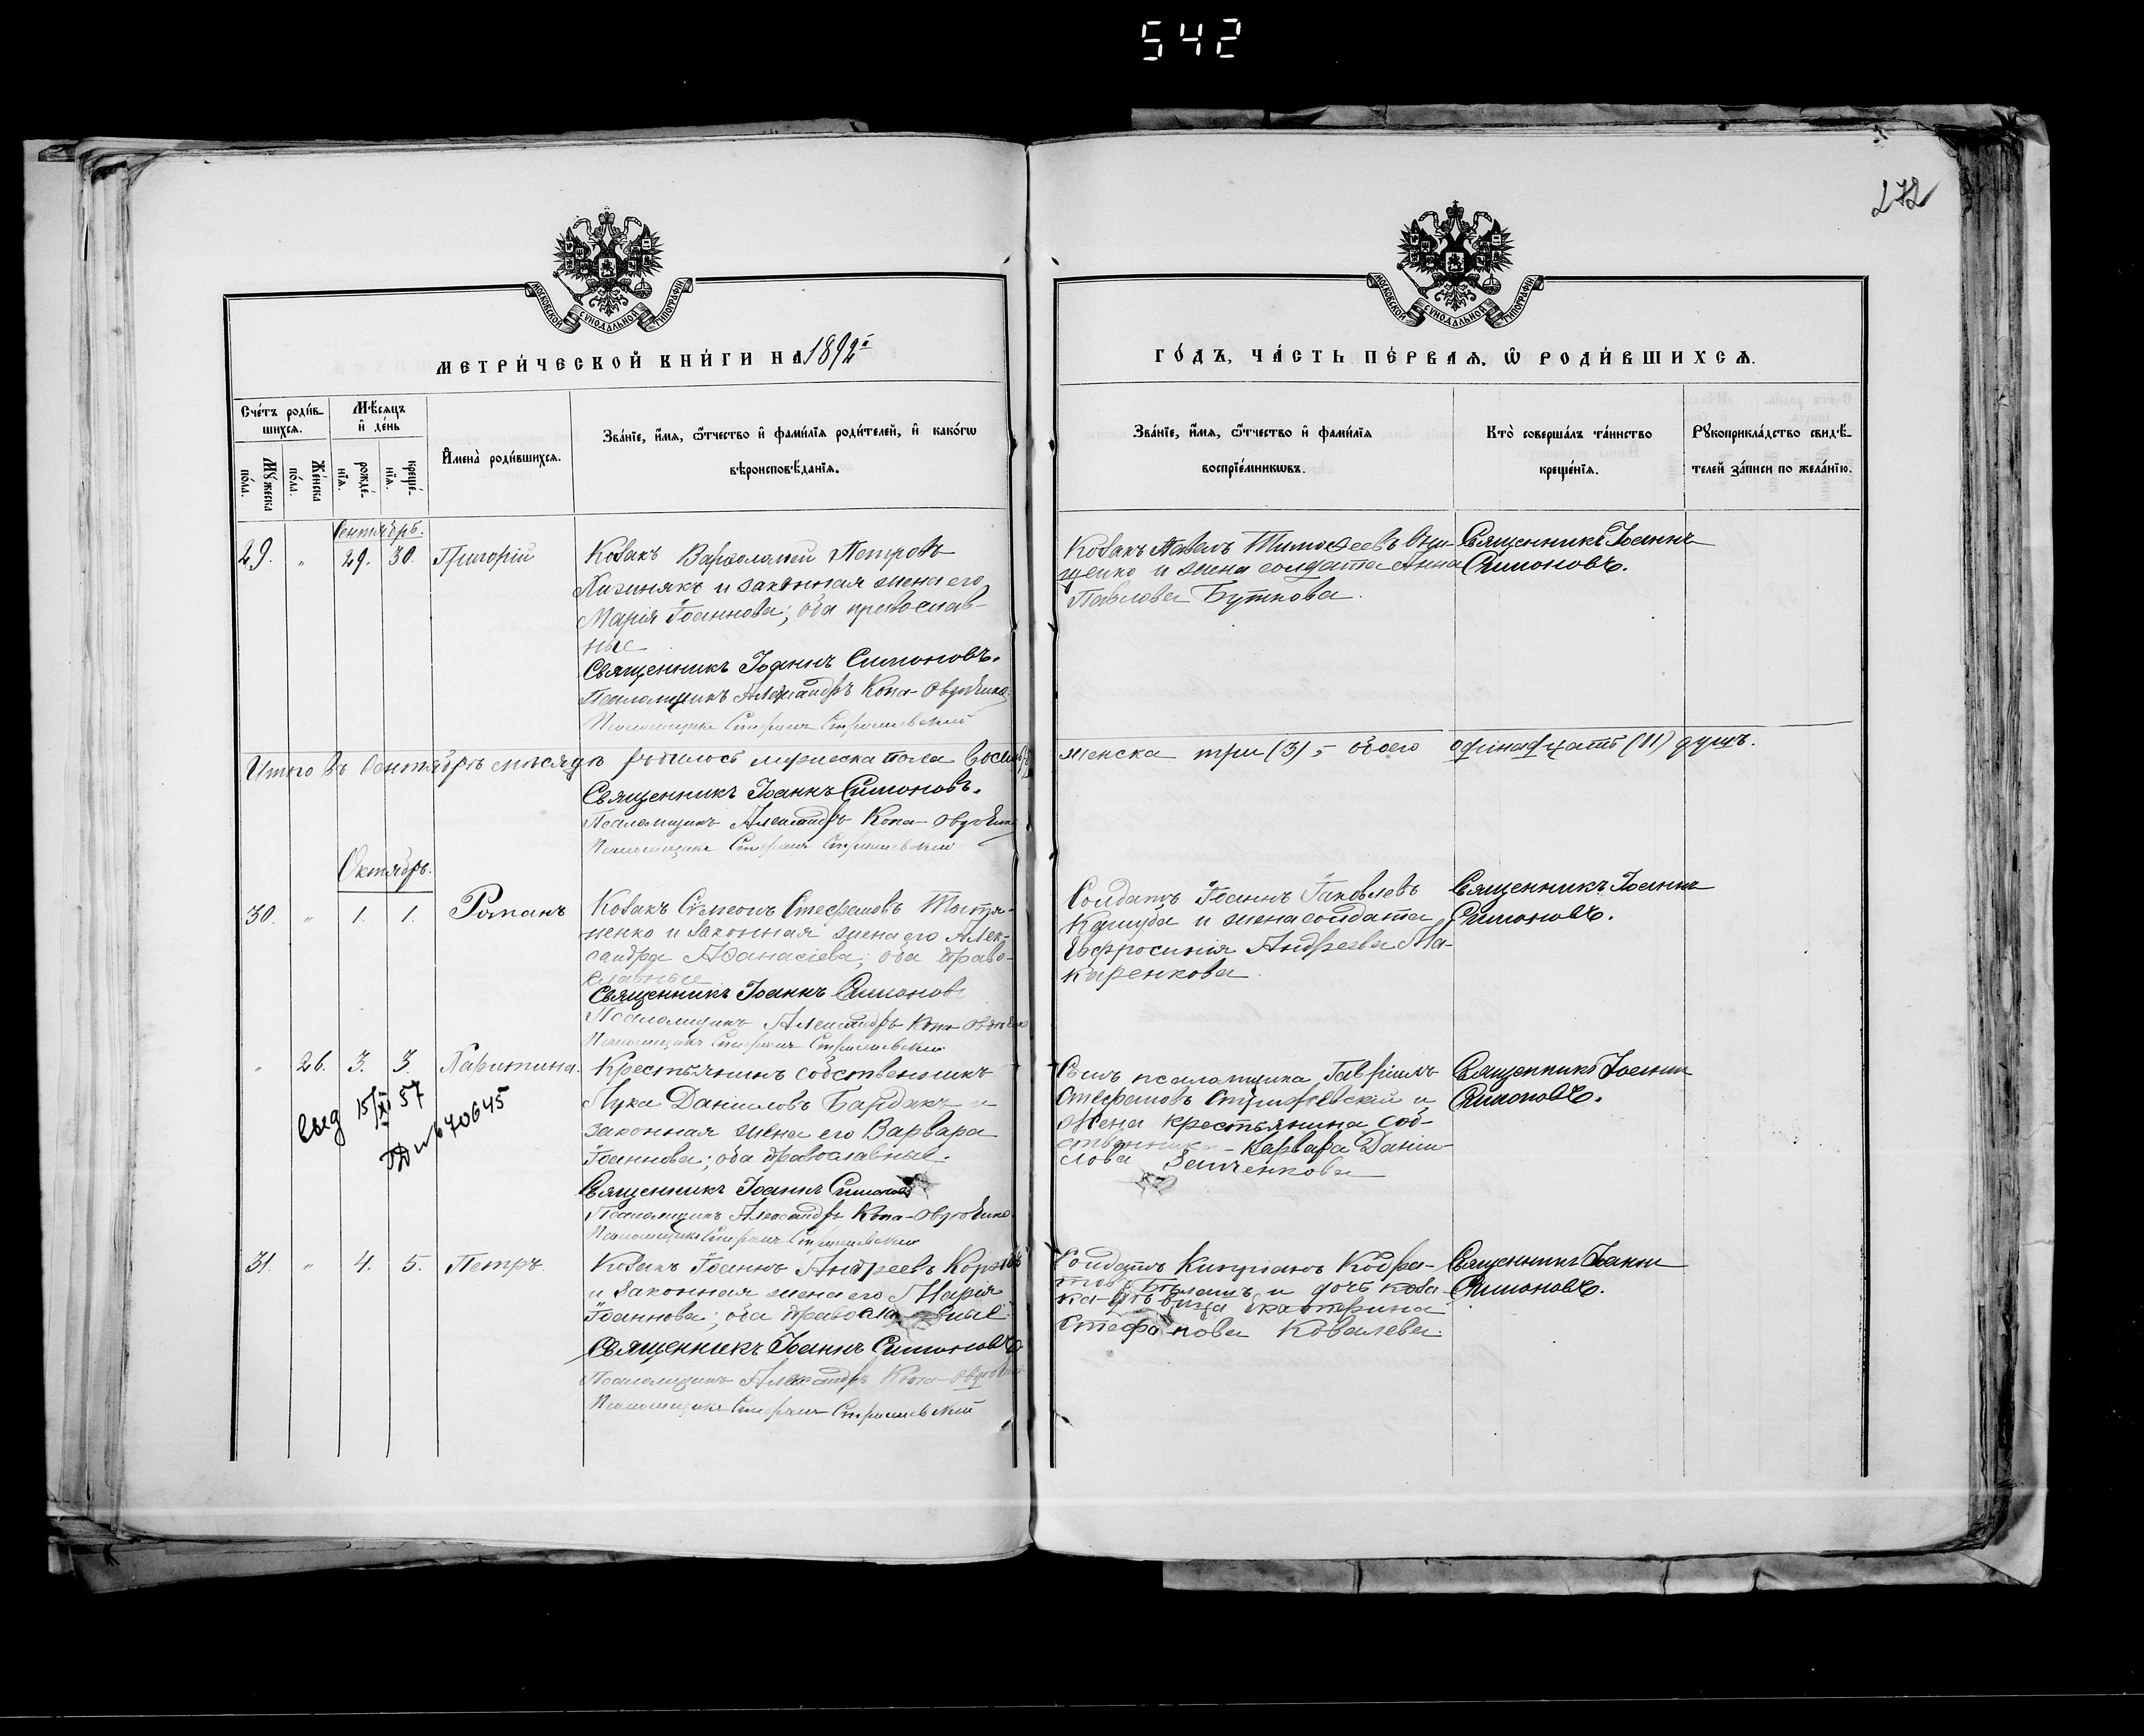 542
272
МОСКОВСКОЙ СѴНОДАЛЬНОЙ ТИПОГРАФІИ
МОСКОВСКОЙ СѴНОДАЛЬНОЙ ТИПОГРАФІИ
МЕТРИ́ЧЕСКОЙ КНИ́ГИ НА 1892й
ГО́ДЪ, ЧА́СТЬ ПЕ́РВАѦ, Ѡ҆ РОДИ́ВШИХСѦ.
Сче́тъ роди́в-
шихсѧ.
Мꙋ́жеска
по́ла.
Же́нска
по́ла.
Мѣ́сѧцъ
и҆ де́нь
рожде́-
нїѧ.
креще́-
нїѧ.
И҆мена̀ роди́вшихсѧ.
Зва́нїе, и҆́мѧ, ѻ҆́тчество и҆ фами́лїѧ роди́телей, и҆ како́гѡ
вѣроисповѣ́данїѧ.
Зва́нїе, и҆́мѧ, ѻ҆́тчество и҆ фами́лїѧ
воспрїе́мникѡвъ.
Кто̀ соверша́лъ та́инство
креще́нїѧ.
Рꙋкоприкла́дство свидѣ́-
телей за́писи по жела́нїю.
Сентябрь.
29. „ 29. 30. Григорій
Козакъ Варѳоломей Петровъ
и законная жена его
Марія Іоаннова; оба православ-
ные
Священникъ Іоаннъ Симоновъ.
Псаломщикъ Александръ Копа-Овдѣенко
Псаломщикъ Стефанъ Стрижевскій
Козакъ Павелъ Тимоѳеевъ
и жена солдата Анна
Павлова Буткова.
Священникъ Іоаннъ
Симоновъ.
Итого въ Сентябрѣ мѣсяцѣ родилось мужеска пола восемь
женска три (3), обоего одинадцать (11) душъ.
Священникъ Іоаннъ Симоновъ.
Псаломщикъ Александръ Копа-Овдѣенко
Псаломщикъ Стефанъ Стрижевскій
Октябрь.
30. „ 1. 1. Романъ
Козакъ Сѵмеонъ Стефановъ
и законная жена его Алек-
сандра Аѳанасіева; оба право-
славные
Священникъ Іоаннъ Симоновъ
Псаломщикъ Александръ Копа-Овдѣенко
Псаломщикъ Стефанъ Стрижевскій
Солдатъ Іоаннъ Іаковлевъ
и жена солдата
Евфросинія Андреева Ма-
каренкова.
Священникъ Іоаннъ
Симоновъ.
„ 26. 3. 3. Харитина.
15/XI 57
70645
Крестьянинъ собственникъ
Лука Даніиловъ Бардакъ и
законная жена его Варвара
Іоаннова; оба православные.
Священникъ Іоаннъ Симоновъ
Псаломщикъ Александръ Копа-Овдѣенко
Псаломщикъ Стефанъ Стрижевскій
Сынъ псаломщика Гавріилъ
Стефановъ Стрижевскій и
жена крестьянина соб-
ственника Варвара Даніи-
лова
Священникъ Іоаннъ
Симоновъ.
31. „ 4. 5. Петръ
Козакъ Іоаннъ Андреевъ
и законная жена его Марія
Іоаннова; оба православные
Священникъ Іоаннъ Симоновъ
Псаломщикъ Александръ Копа-Овдѣенко
Псаломщикъ Стефанъ Стрижевскій
Солдатъ Кипріанъ Кодра-
товъ и дочь коза-
ка дѣвица Екатерина
Стефанова Ковалева.
Священникъ Іоаннъ
Симоновъ.